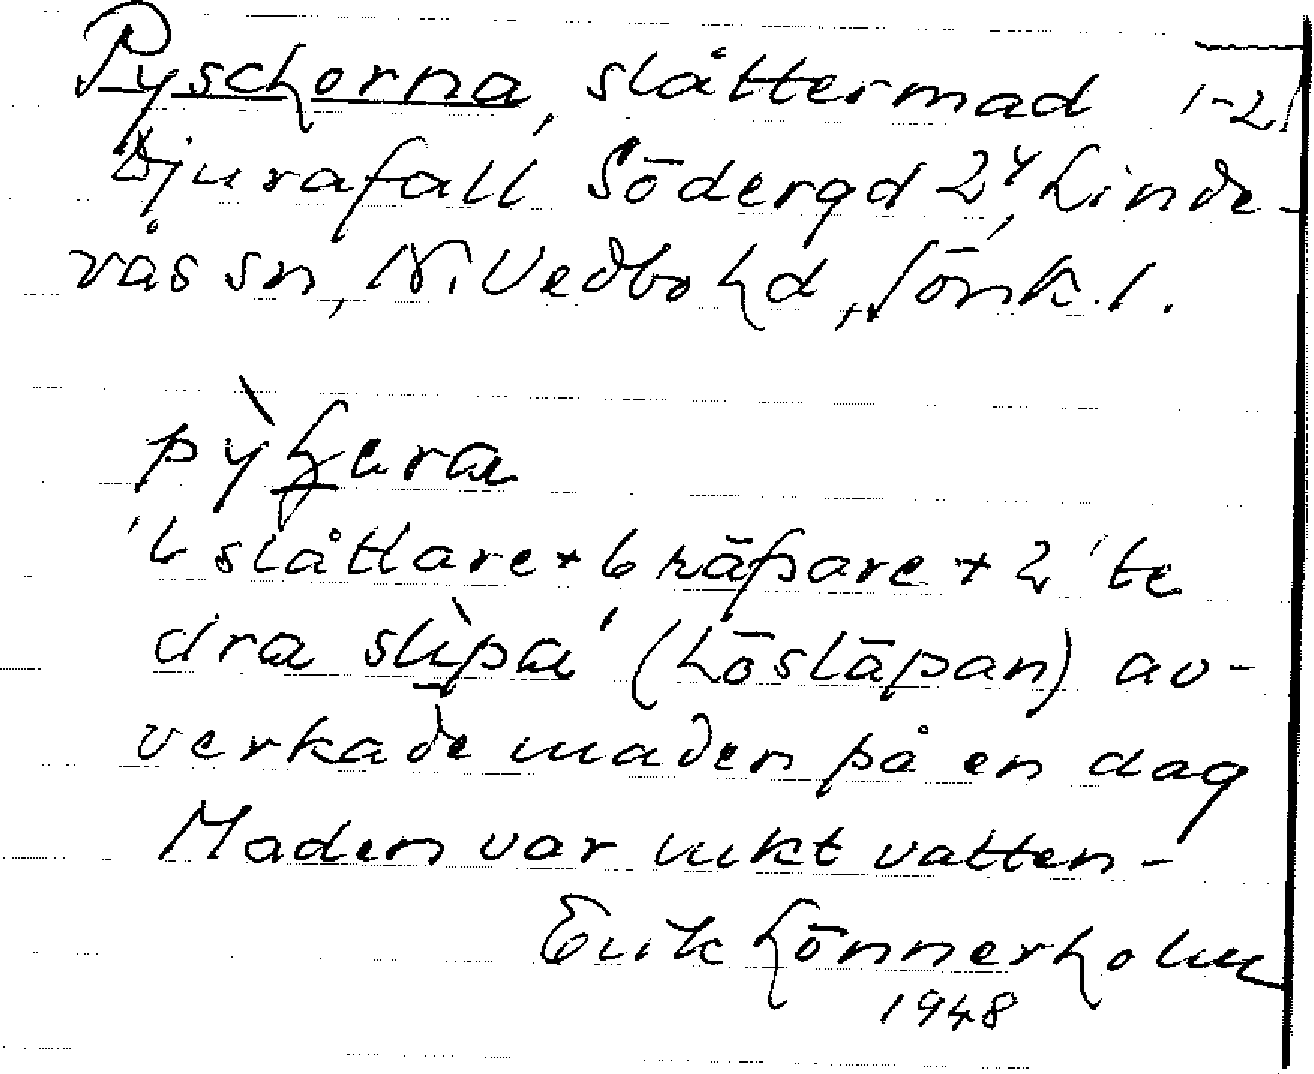 Pyschorna, slåttermad 1-2
Djurafall Södergd 2⁴, Linde-
rås sn, N. Vedbo hd, Jönk. l.
'6 slåttare + 6 räfsare + 2 'te
dra slipa' (höslāpan) av-
verkade maden på en dag
Maden var mkt vatten-
Erik Lönnerholm
1948